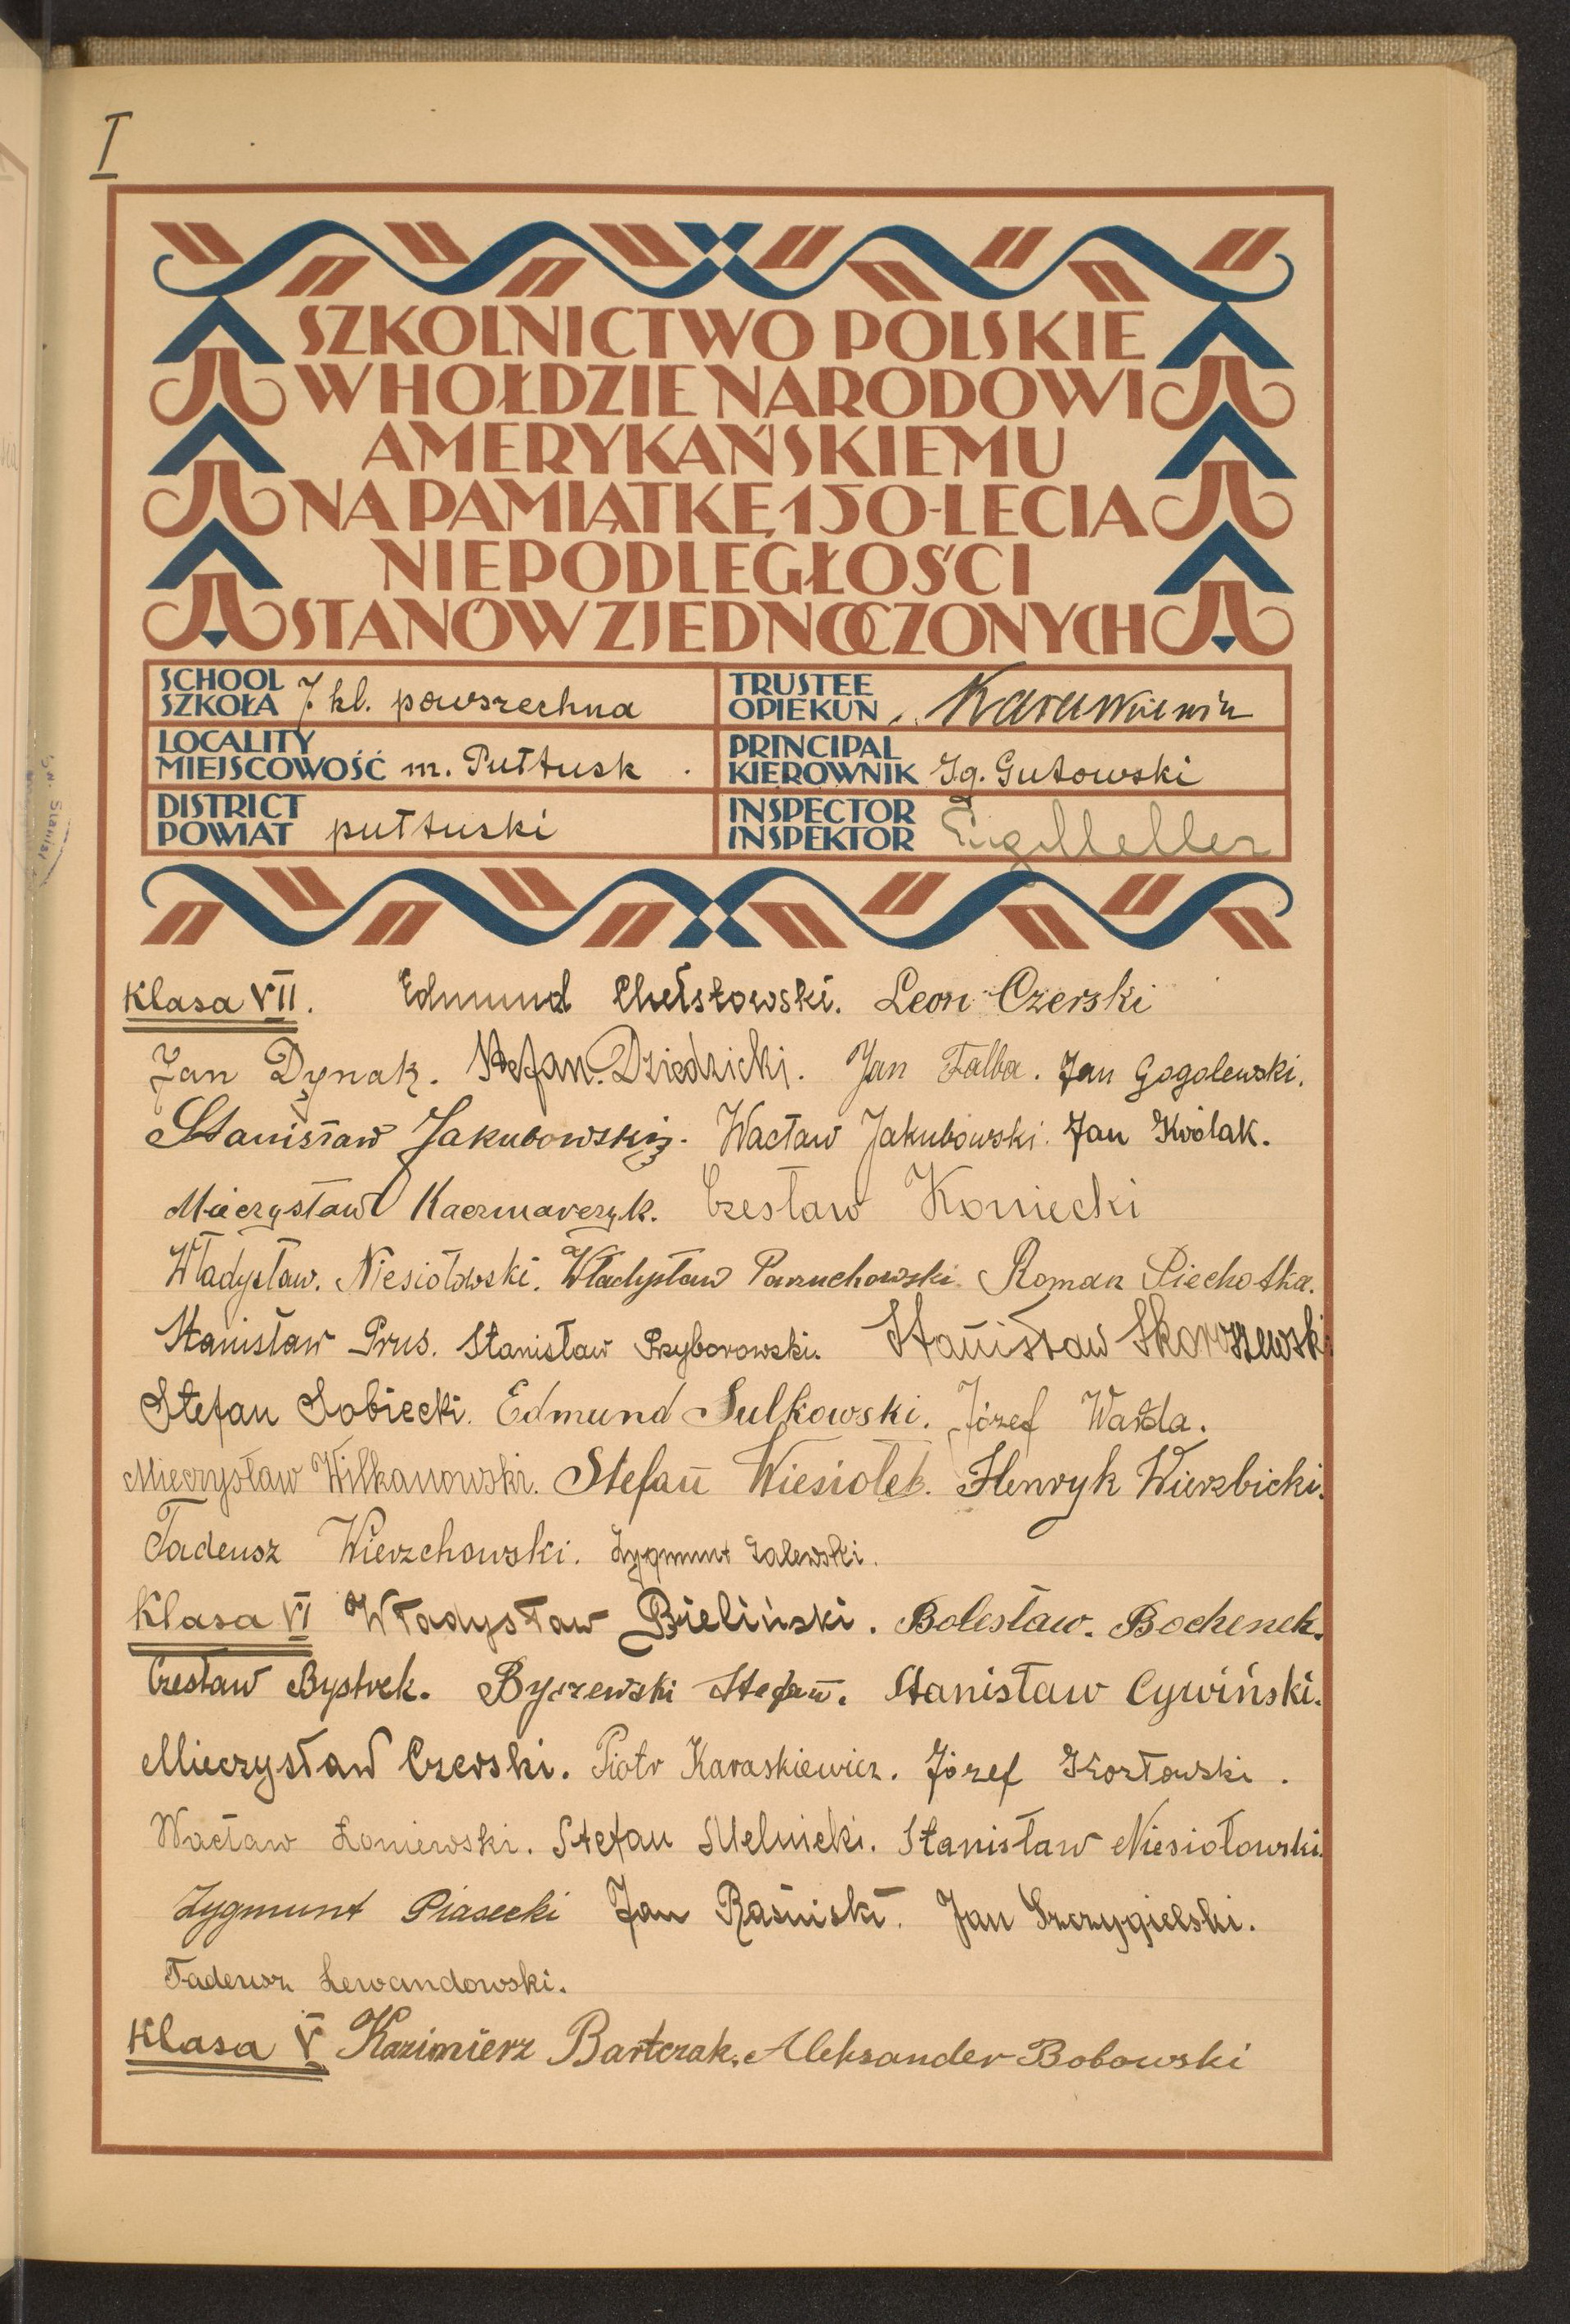 I
SZKOLNICTWO POLSKIE
W HOŁDZIE NARODOWI
AMERYKAŃSKIEMU
NA PAMIĄTKĘ 150-LECIA
NIEPODLEGŁOŚCI
STANÓW ZJEDNOCZONYCH
SCHOOL
SZKOŁA 7 kl. powszechna
TRUSTEE
OPIEKUN
LOCALITY
MIEJSCOWOŚĆ m. Pułtusk.
PRINCIPAL
KIEROWNIK Ig. Gutowski
DISTRICT
POWIAT pułtuski
INSPECTOR
INSPEKTOR
Klasa VII. Edmund Chełstowski. Leon Czerski
Jan Dynak. Stefan. Dziedzicki. Jan Falba. Jan Gogolewski.
Stanisław Jakubowski. Wacław Jakubowski. Jan Królak.
Mieczysław Kaczmarczyk. Czesław Koniecki
Władysław. Niesiołowski. Władysław Paruchowski. Roman Piechotka.
Stanisław Prus. Stanisław Przyborowski. Stanisław Skoroszewski
Stefan Sobiecki. Edmund Sulkowski. Józef Warda.
Mieczysław Wilkanowski. Stefan Wiesiołek. Henryk Wierzbicki.
Tadeusz Wierzchowski. Zygmunt Zalewski.
Klasa VI Władysław Bieliński. Bolesław. Bochenek.
Czesław Bystrek. Byszewski Stefan. Stanisław Cywiński.
Mieczysław Czerski. Piotr Karaskiewicz. Józef Kozłowski.
Wacław Łoniewski. Stefan Melnicki. Stanisław Niesiołowski.
Zygmunt Piasecki Jan Rasiński. Jan Szczygielski.
Tadeusz Lewandowski.
Klasa V Kazimierz Bartczak. Aleksander Bobowski